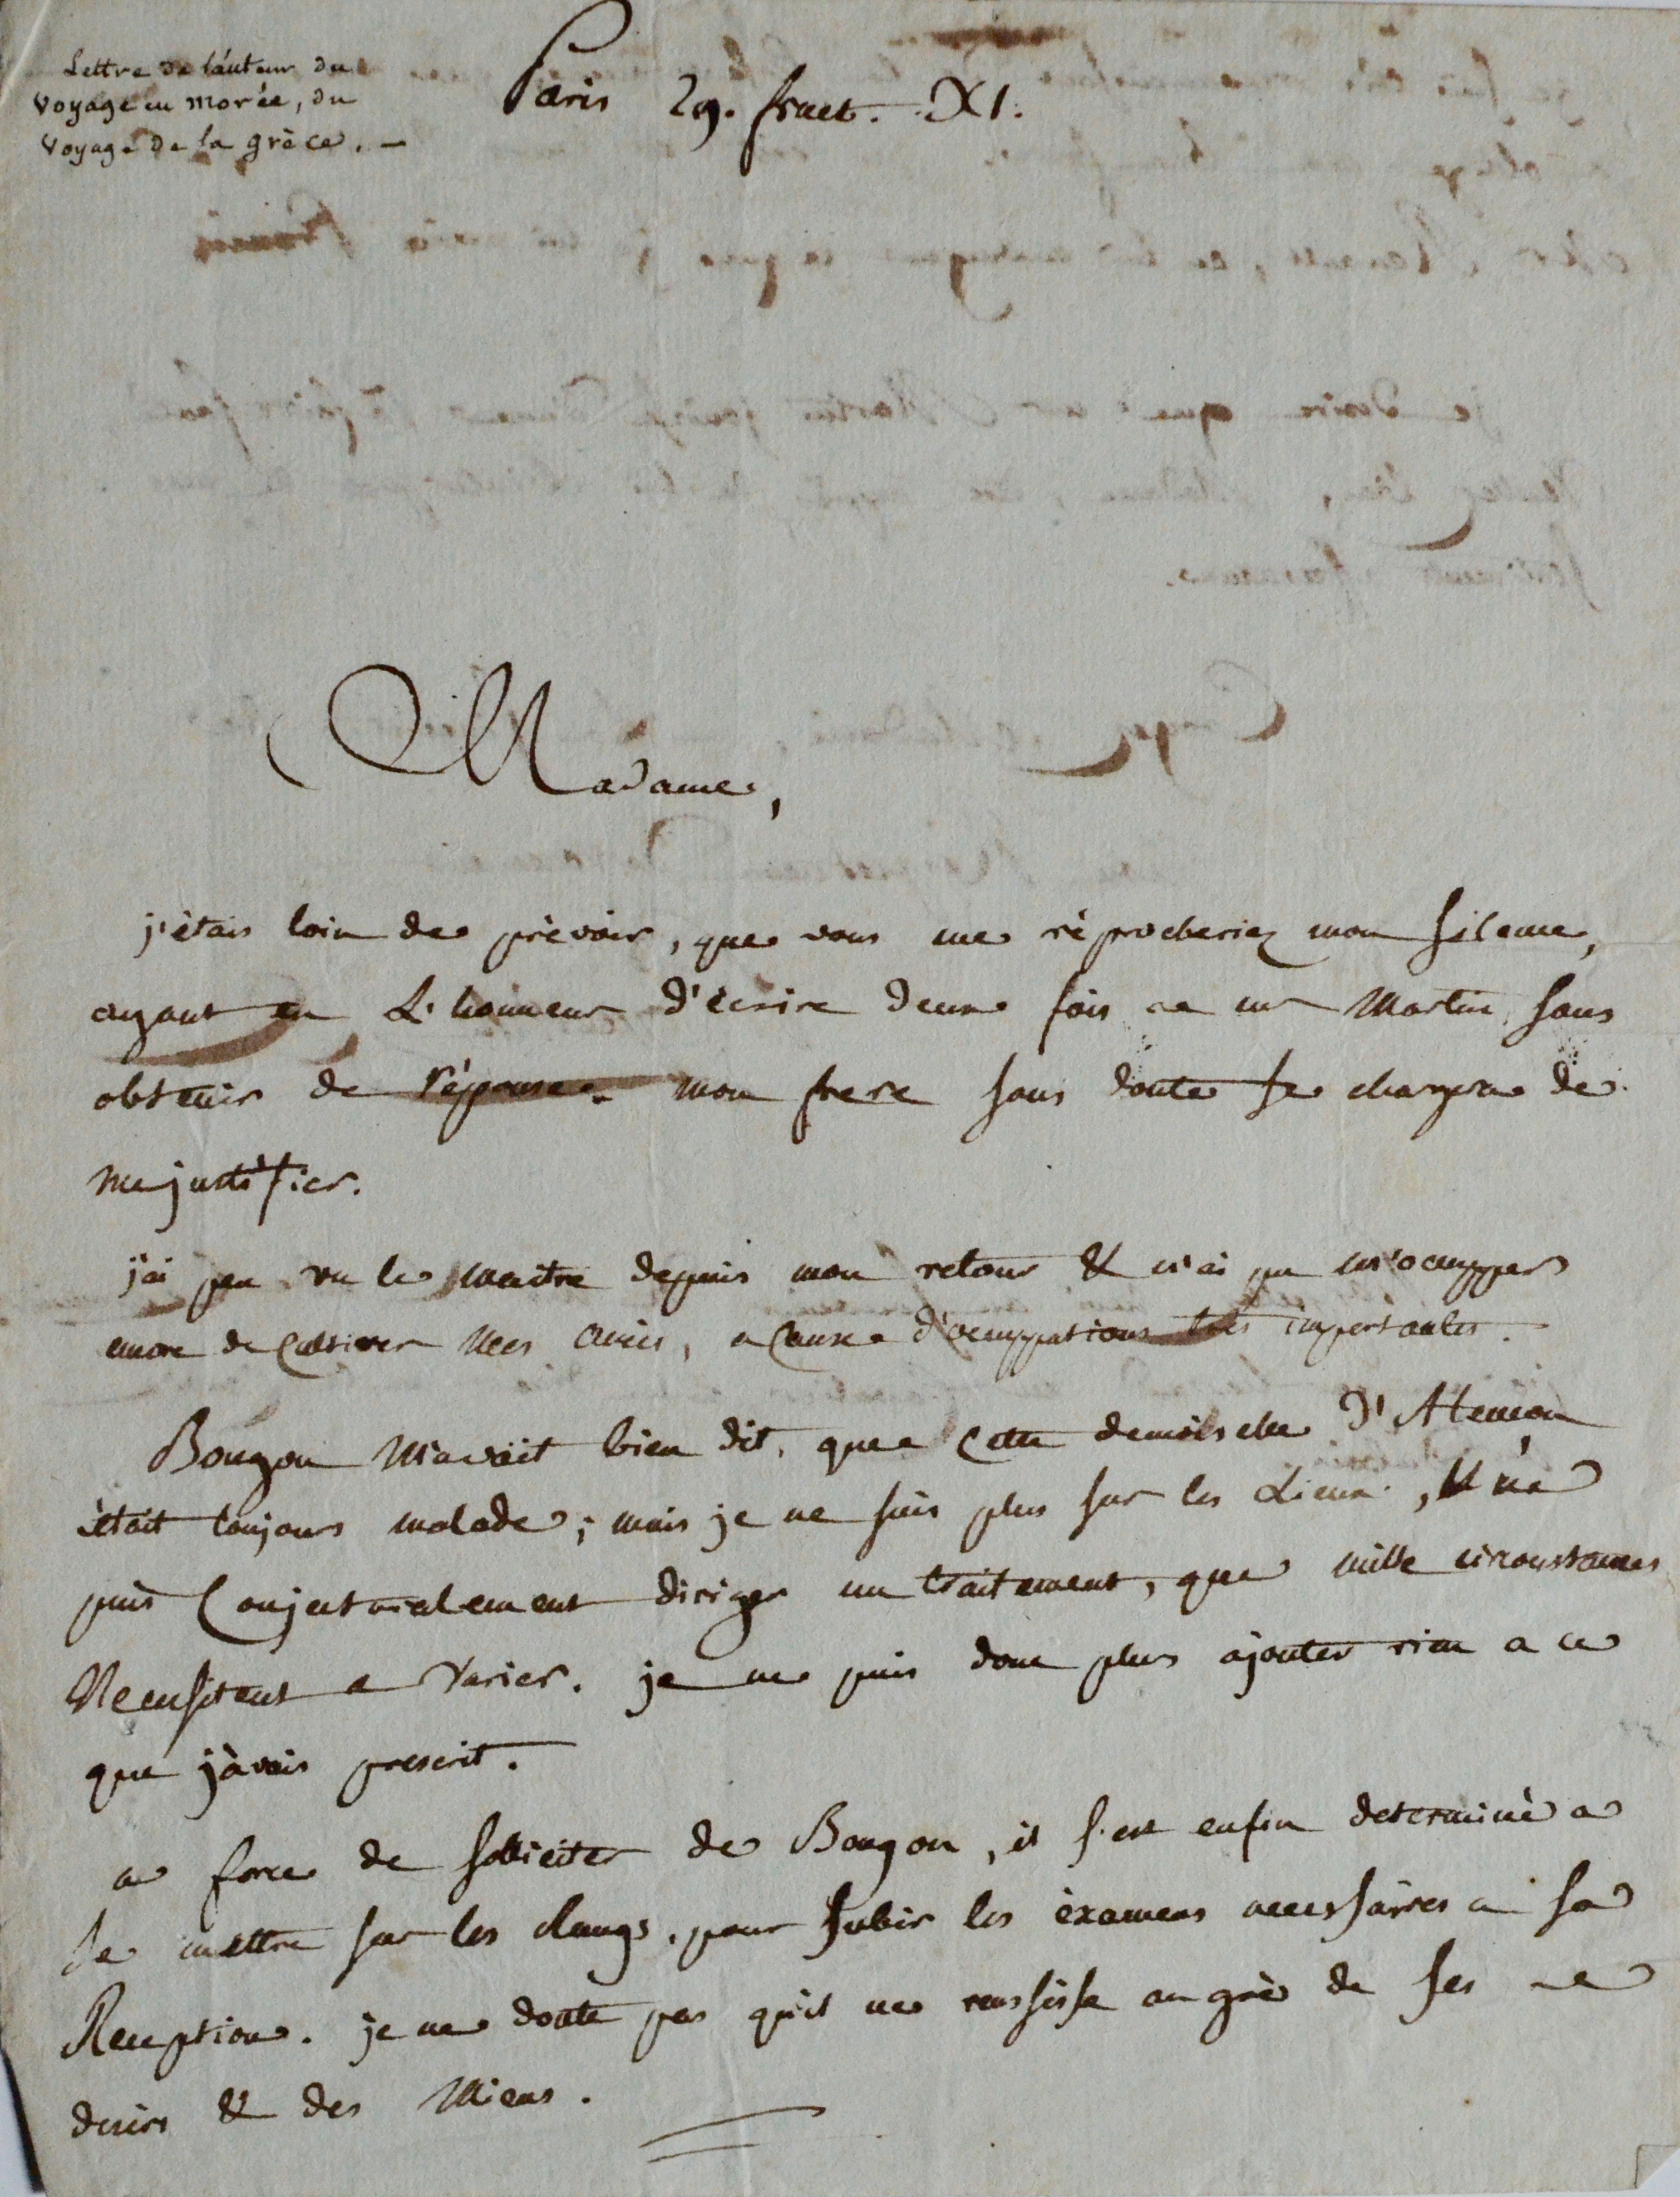 Lettre de l'auteur du
voyage en morée, du
voyage de la grèce. —
Paris 29. fruct. XI.
Madame,
j'étais loin de prévoir, que vous me réprocheriez mon silence,
ayant eu L'honneur d'écrire deux fois a mr Martin, sans
obtenir de réponse. mon frere sans doute se chargera de
me justifier.
j'ai peu vu le maitre depuis mon retour & n'ai pu m'occupper
encore de cultiver mes amis, a cause d'occuppations très importantes.
Bougon m'avait bien dit, que cette demoiselle D'
était toujours malade; mais je ne suis plus sur les Lieux, & ne
puis conjecturalement diriger un traitement, que mille circonstances
Necessitent a varier. je ne puis donc plus ajouter rien a ce
que j'avais prescrit.
a force de solliciter de Bougon, il s'est enfin determiné a
se mettre sur les Rangs, pour subir les éxamens necessaires a sa
Reception. je ne doute pas qu'il ne reussisse au gré de ses
desirs & des Miens.